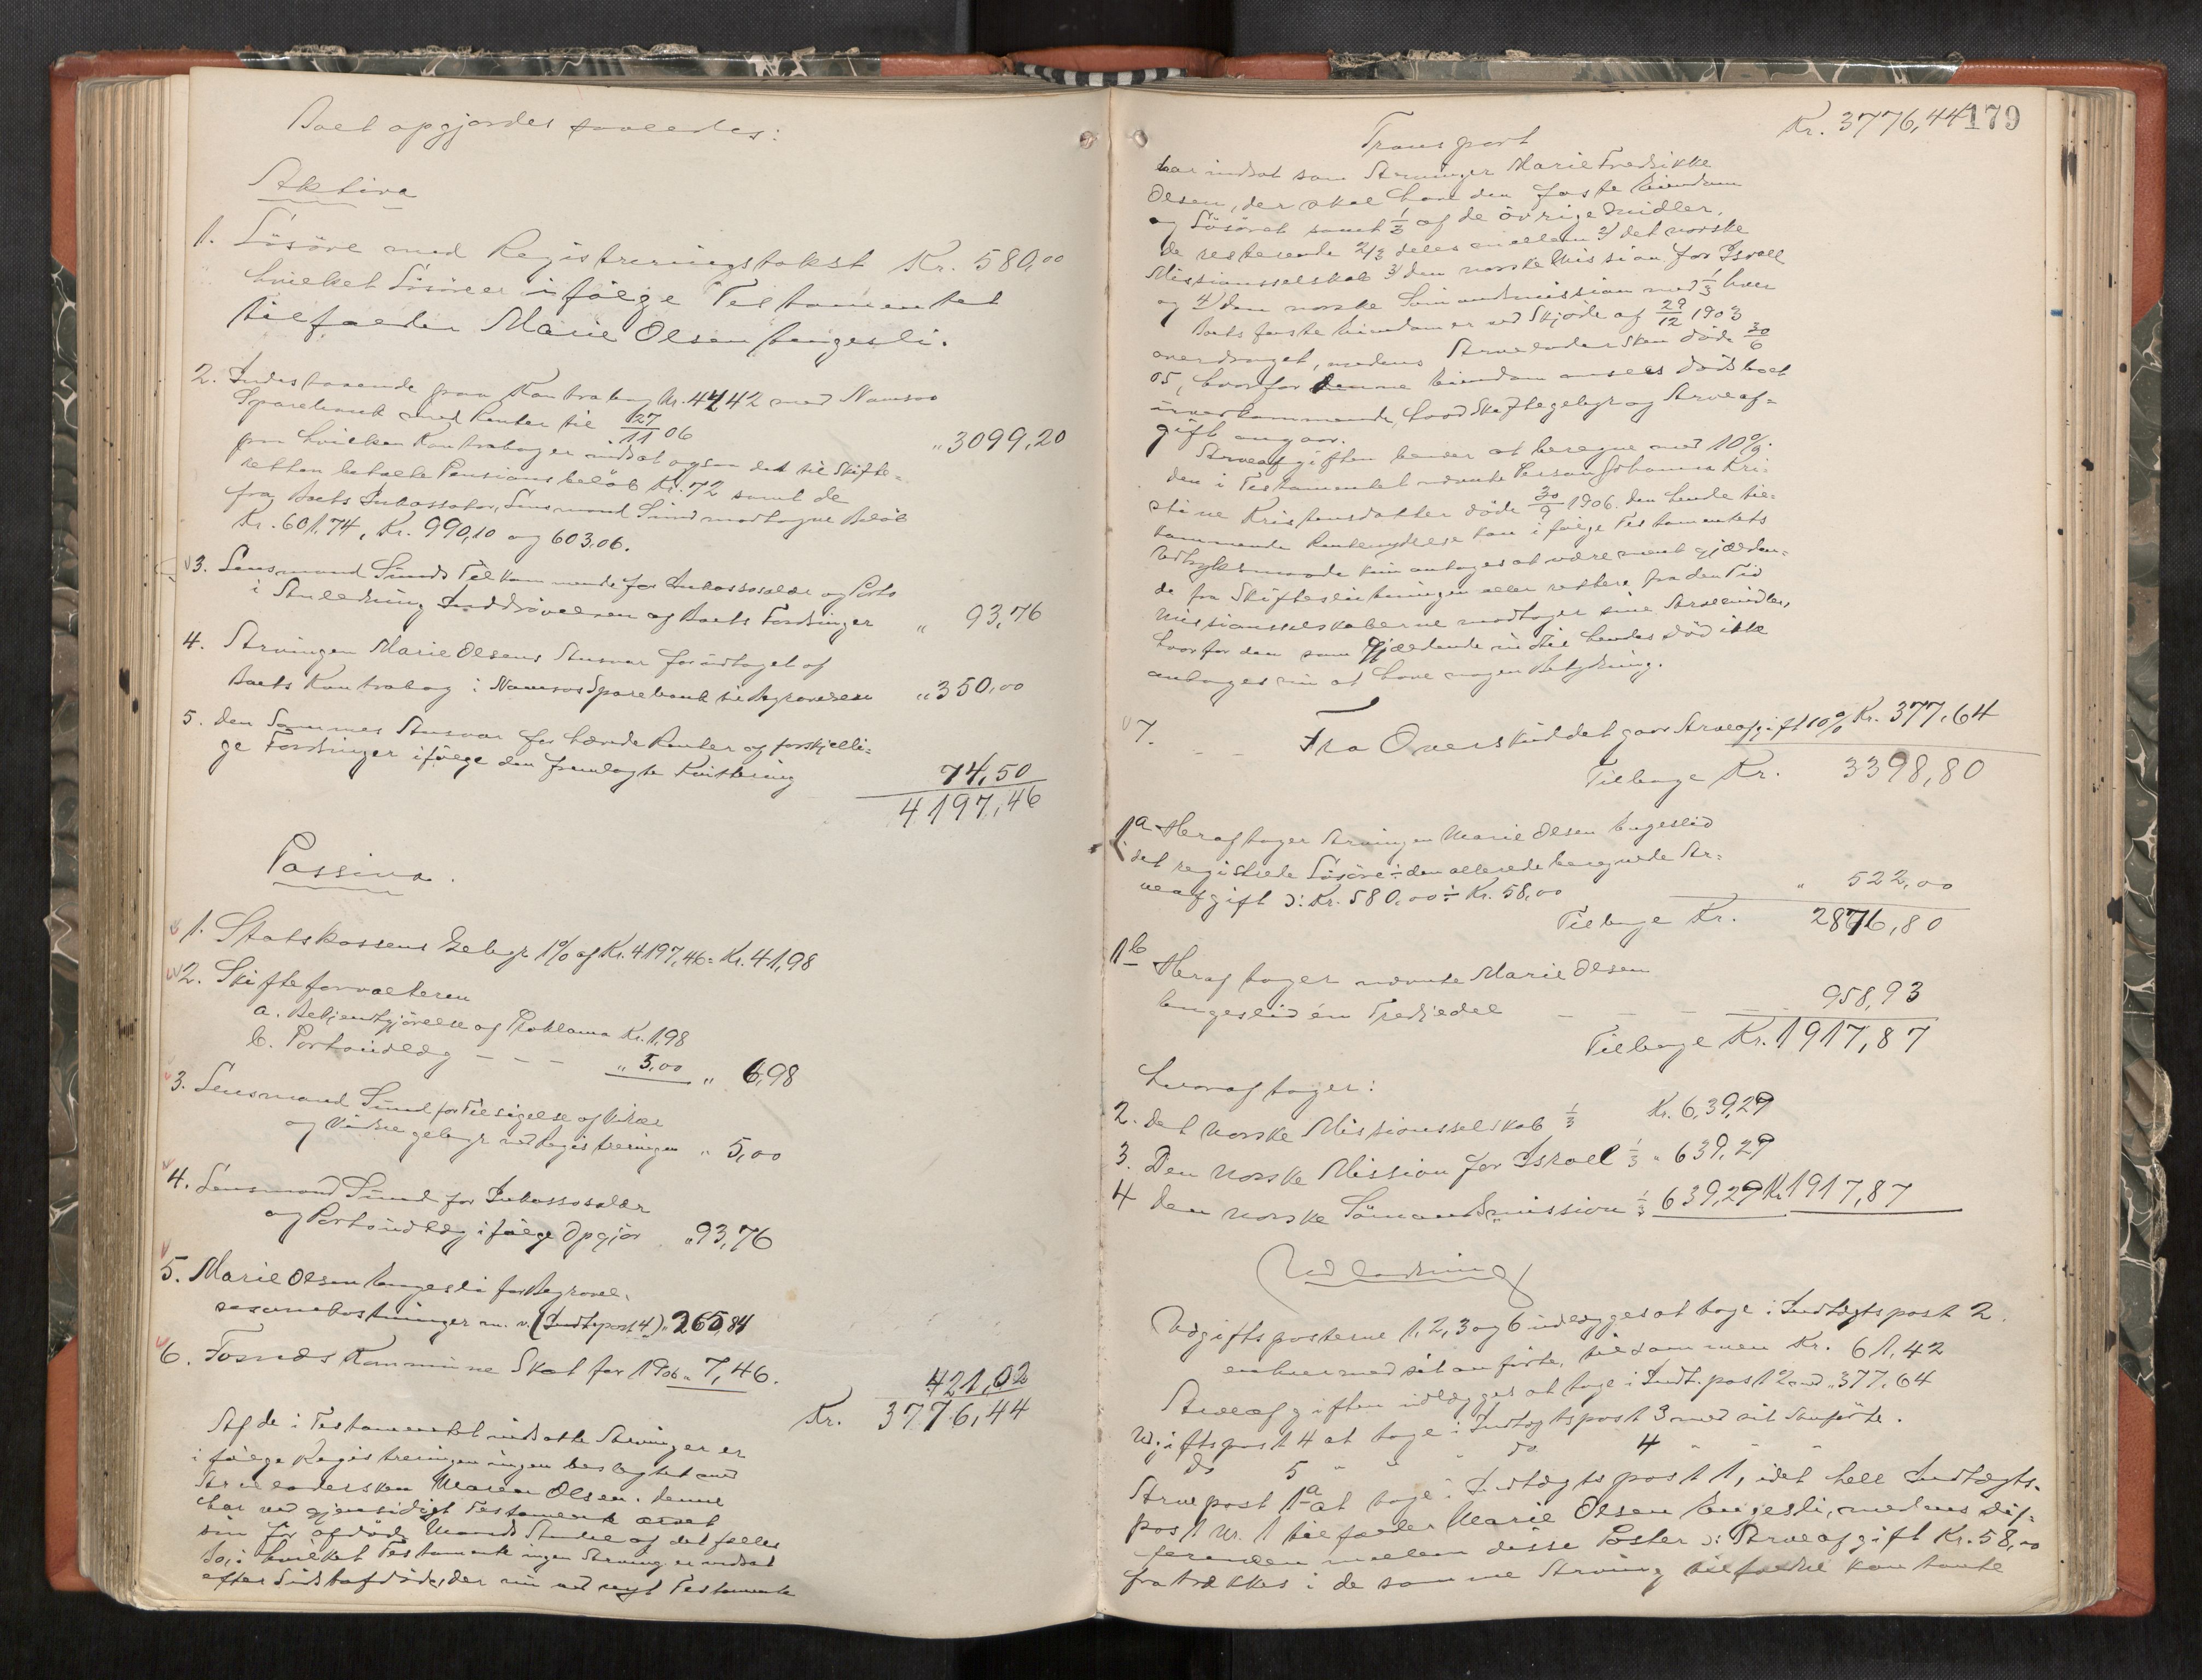 Boet opgjordes saaledes:
Aktiva
1. Lösöre med Registreringstakst Kr. 580,00
hvilket Lösöre ifölge Testamentet
tilfalder Marie Olsen Engesli.
2. Indestaaende paa Kontrabog Nr. 4442 med Namsos
Sparebank med Renter til 27/11 06 „ 3099,20
paa hvilken Kontrabog er indsat ogsaa det til Skifte-
retten betalte Pensionsbelöb Kr. 72 samt de
fra Boets Inkassator, Lensmand Sund modtagne Belöb
Kr. 601,74, Kr. 990,10 og 603,06.
3. Lensmand Sunds Tilkommende for Inkassosalær og Porto
i Anledning Inddrivelsen af Boets Fordringer „ 93,76
4. Arvingen Marie Olsens Ansvar for udtaget af
Boets Kontrabog i Namsos Sparebank til Begravelsen „ 350,00
5. Den Sammes Ansvar for hævede Renter og forskjelli-
ge Fordringer ifölge den fremlagte Kvittering 74,50
4197,46
Passiva.
1. Statskassens Gebyr 1% af Kr. 4197,46 = Kr. 41,98
2. Skifteforvalteren
a. Bekjendtgjörelse af Proklama Kr. 1,98
b. Portoudlæg – – – „ 5,00 „ 6,98
3. Lensmand Sund for Tilsigelse af Vidner
og Vidnegebyr ved Registreringen „ 5,00
4. Lensmand Sund for Inkassosalær
og Portoudlæg ifölge Opgjör „ 93,76
5. Marie Olsen Engesli for Begravel-
sesomkostninger m. v. (Indt. post 4) „ 265,84
6. Fosnæs Kommune Skat for 1906 „ 7,46. 421,02
Kr. 3776,44
Af de i Testamentet indsatte Arvinger er
ifölge Registreringen ingen beslægtet med
Arveladersken Maren Olsen. Denne
har ved gjensidigt Testament arvet
sin för afdöde Mands Andel af det fælles
Bo, i hvilket Testamente ingen Arving er indsat
efter Sidstafdöde, der nu ved nyt Testamente
179
Transport Kr. 3776,44
har indsat som Arvinger Marie Fredrikke
Olsen, der skal have den faste Eiendom
og Lösöret samt 1/3 af de övrige Midler,
de resterende 2/3 deles mellem 2) det norske
Missionsselskab 3) den norske Mission for Israel
og 4) den norske Sömandsmission med 1/3 hver
Boets faste Eiendom er ved Skjöde af 29/12 1903
overdraget, medens Arveladersken döde 30/6
05, hvorfor denne Eiendom ansees Dödsboet
uvedkommende, hvad Skiftegebyr og Arveaf-
gift angaar.
Arveafgiften bliver at beregne med 10%.
Den i Testamentet nævnte Person Johanna Kri-
stine Kristensdatter döde 30/9 1906. Den hende til-
kommende Rentenydelse kan ifölge Testamentets
Udtryksmaade kun antages at være ment gjælden-
de fra Skifteslutningen eller rettere fra den Tid
Missionsselskaberne modtager sine Arvemidler,
hvorfor den som gjældende indtil hendes Död ikke
antages nu at have nogen Betydning.
7. – – Fra Overskuddet gaar Arveafgift 10% Kr. 377,64
Tilbage Kr. 3398,80
1a Heraf tager Arvingen Marie Olsen Engeslid
det registrede Lösöre ÷ den allerede beregnede Ar-
veafgift ɔ: Kr. 580,00 ÷ Kr. 58,00 „ 522,00
Tilbage Kr. 2876,80
1b Heraf tager nævnte Marie Olsen
Engeslid én Trediedel – – – – 958,93
Tilbage Kr. 1917,87
hvoraf tager:
2. Det norske Missionsselskab 1/3 Kr. 639,29
3. Den norske Mission for Israel 1/3 „ 639,29
4 Den norske Sömandsmission 1/3 639,29 Kr. 1917,87
Udlodning
Udgiftsposterne 1, 2, 3 og 6 udlægges at tage i Indtægtspost 2.
enhver med sit anförte, tilsammen Kr. 61,42
Arveafgiften udlægges at tage i Indt. post 2 med „ 377,64
Udgiftspost 4 at tage i Indtægtspost 3 med sit Anförte.
do 5 „ „ „ do 4 „ „ „
Arvepost 1a at tage i Indtægtspost 1, idet hele Indtægts-
post Nr. 1 tilfalder Marie Olsen Engesli, medens Dif-
ferencen mellem disse Poster ɔ: Arveafgift Kr. 58,00
fratrækkes i de samme Arving tilfaldne kontante